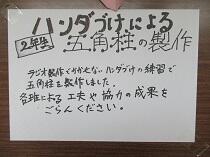 ハンダづけによる
2年生
五角柱の製作
ラジオ製作でかかせないハンダづけの練習で
五角柱を製作しました。
各班による工夫や協力の成果を
ごらんください。